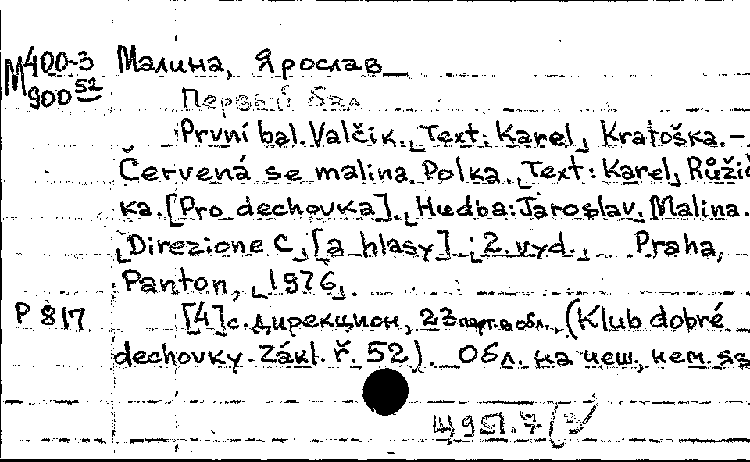 М 400-3 Малина, Ярослав
900 52
Первый бал
První bal. Valčík. Text: Karel Kratoška. –
Červená se malina. Polka. Text: Karel Růžič
ka. [Pro dechovka]. Hudba: Jaroslav Malina.
Direzione C, [a hlasy]. 2. vyd. Praha,
Panton, 1976.
Р 817 [4] с. дирекцион, 23 парт. в обл., (Klub dobré
dechovky. Zákl. ř. 52). Обл. на чеш., нем. яз